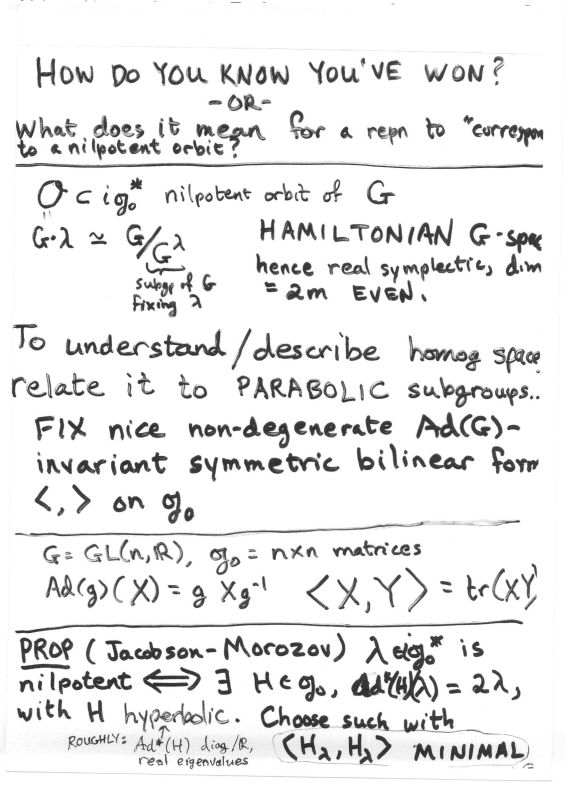 HOW DO YOU KNOW YOU'VE WON?
-OR-
What does it mean for a repn to "correspon
to a nilpotent orbit?
O ⊂ i𝔤₀* nilpotent orbit of G
G·λ ≃ G/G^λ HAMILTONIAN G-spac
subgp of G
fixing λ
hence real symplectic, dim
= 2m EVEN.
To understand/describe homog space
relate it to PARABOLIC subgroups..
FIX nice non-degenerate Ad(G)-
invariant symmetric bilinear form
<,> on 𝔤₀
G = GL(n,ℝ), 𝔤₀ = n×n matrices
Ad(g)(X) = g Xg⁻¹ <X,Y> = tr(XY)
PROP (Jacobson-Morozov) λ∈i𝔤₀* is
nilpotent ⟺ ∃ H∈𝔤₀, ad*(H)(λ) = 2λ,
with H hyperbolic. Choose such with
ROUGHLY: Ad*(H) diag/R,
real eigenvalues
<H_λ, H_λ> MINIMAL